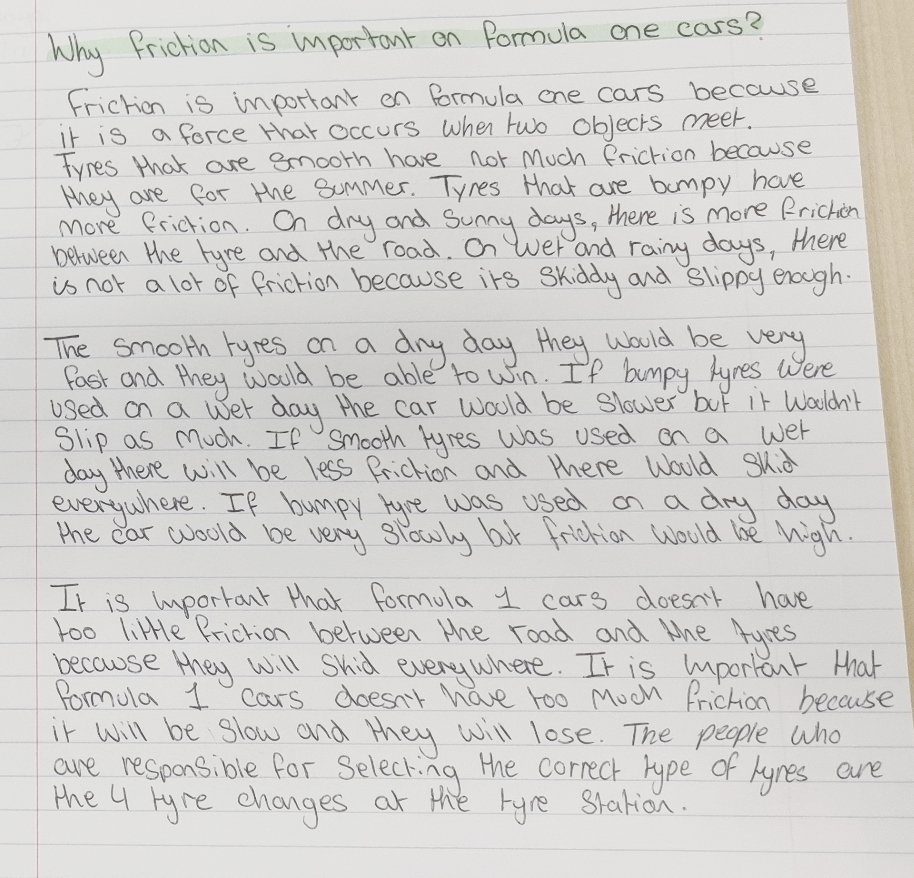 Why friction is important on formula one cars?
Friction is important on formula one cars because
it is a force that occurs when two objects meet.
Tyres that are smooth have not much friction because
they are for the summer. Tyres that are bumpy have
more friction. On dry and sunny days, there is more friction
between the tyre and the road. On wet and rainy days, there
is not a lot of friction because its skiddy and slippy enough.
The smooth tyres on a dry day they would be very
fast and they would be able to win. If bumpy tyres were
used on a wet day the car would be slower but it wouldn't
slip as much. If smooth tyres was used on a wet
day there will be less friction and there would skid
everywhere. If bumpy tyre was used on a dry day
the car would be very slowly but friction would be high.
It is important that formula 1 cars doesn't have
too little friction between the road and the tyres
because they will skid everywhere. It is important that
formula 1 cars doesn't have too much friction because
it will be slow and they will lose. The people who
are responsible for selecting the correct type of tyres are
the 4 tyre changes at the tyre station.